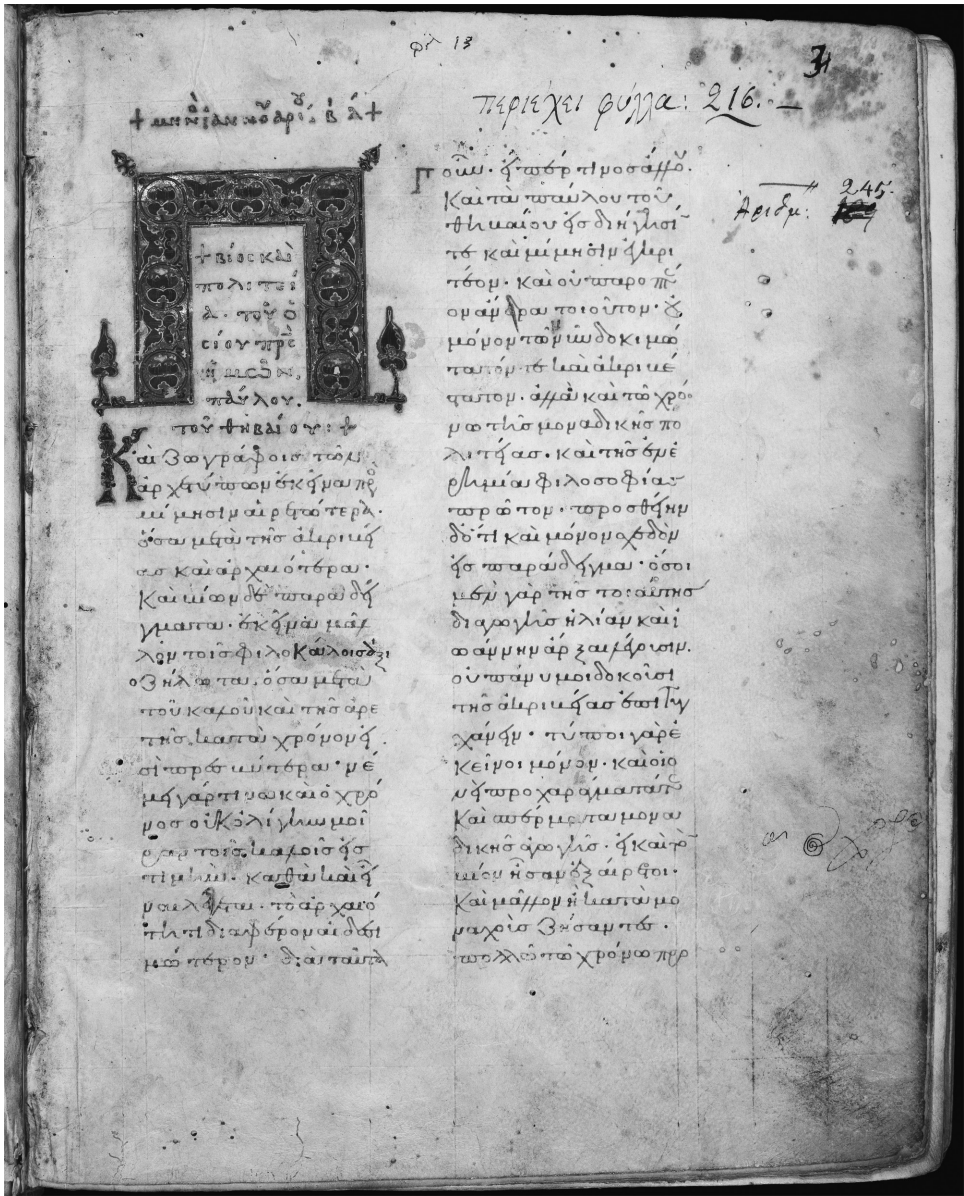 φύλ 13
34
περιέχει φύλλα: 216. —
Ἀριθμ: 245.
+ μηνὶ ἰαννουαρίου
+ βίος καὶ
πολιτεί
α· τοῦ ὁ
σίου πρς
ἡμῶν
παύλου.
τοῦ θηβαίου: +
Καὶ ζωγράφοις τῶν
ἀρχετύπων ἐκεῖνα πρὸς
μίμησιν αἱρετώτερα.
ὅσα μετὰ τῆς ἀκριβεί
ας καὶ ἀρχαιότερα·
Καὶ βίων δὲ παραδεί
γματα· ἐκεῖνα μᾶλ
λον τοῖς φιλοκάλοις δόξει
ζηλωτα. ὅσα μετὰ
τοῦ καλοῦ καὶ τῆς ἀρε
τῆς κατὰ χρόνον εἰ
σὶ πρεσβύτερα· νέ
μει γάρ τι γνω καὶ ὁ χρό
νος οὐκ ὀλίγην μοῖ
ραν τοῖς καλοῖς εἰς
τιμήν. καθὰ καὶ εἰ
ναι λέγεται· τὸ ἀρχαιό
τητι διαφέρον αἰδεσι
μώτερον· διὰ ταῦτα
γοῦν· εἴπερ τινὸς ἄλλου.
Καὶ τὰ παύλου τοῦ
θηβαίου εἰς διήγησί
τε καὶ μίμησιν ἑλκυ
τέον· καὶ οὐ παροπτέ
ον ἄνδρα τοιοῦτον· οὐ
μόνον τῶν εὐδοκιμω
τατόν τε καὶ ἀκριβέ
στατον· ἀλλὰ καὶ τῷ χρό
νῳ τῆς μοναδικῆς πο
λιτείας· καὶ τῆς ἐν ἐ
ρημίᾳ φιλοσοφίας
πρῶτον· προσθείην
δ᾽ ὅτι καὶ μόνον σχεδὸν
εἰς παράδειγμα· ὅσοι
μὲν γὰρ τῆς τοιαύτης
διαγωγῆς ἠλίαν καὶ ἰ
ωάννην ἄρξαι φέρουσιν.
οὐ πάνυ μοι δοκοῦσι
τῆς ἀκριβείας ἐπιτυγ
χάνειν· τύποι γὰρ ἐ
κεῖνοι μόνον· καὶ οἷο
νεὶ προχαράγματά τινα
Καὶ σπέρματα μονα
δικῆς ἀγωγῆς· εἰ καὶ τὸν
βίον ἦσαν ἐξαίρετοι·
Καὶ μᾶλλον ἢ κατὰ μο
ναχοὺς ζήσαντες·
πολλῷ τῷ χρόνῳ περ